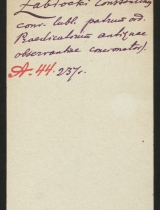 Zabłocki Constantinus
conv. lubl. patrum ord.
Praedicatorum antiquae
observantiae concionator).
A. 44. 237r.